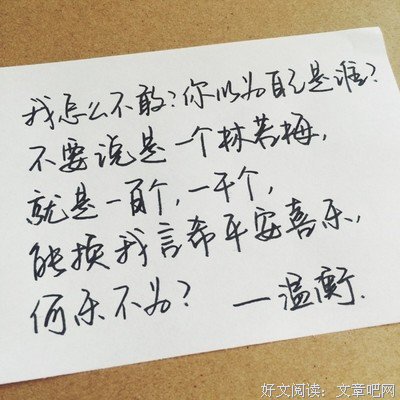 我怎么不敢?你以为自己是谁?
不要说是一个林若梅,
就是一百个,一千个,
能换我言希平安喜乐,
何乐不为? —温衡.
好文阅读：文章吧网